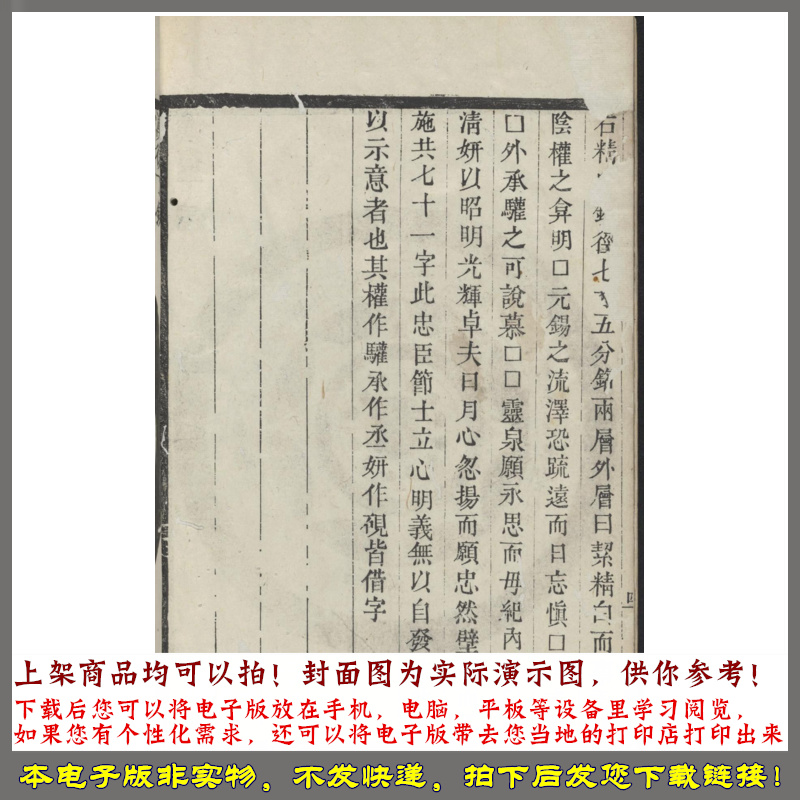 右精
徑七
五分銘兩層外層曰絜精白而
陰權之弇明口元錫之流澤恐疏遠而日忘愼口
口外承驩之可說慕口口靈泉願永思而毋紀內
淸妍以昭明光輝卓夫日月心忽揚而願忠然壁
施共七十一字此忠臣節士立心明義無以自發
以示意者也其權作驩承作丞妍作硯皆借字
四
上架商品均可以拍！封面图为实际演示图，供你参考！
下载后您可以将电子版放在手机，电脑，平板等设备里学习阅览，
如果您有个性化需求，还可以将电子版带去您当地的打印店打印出来
本电子版非实物，不发快递，拍下后发您下载链接！